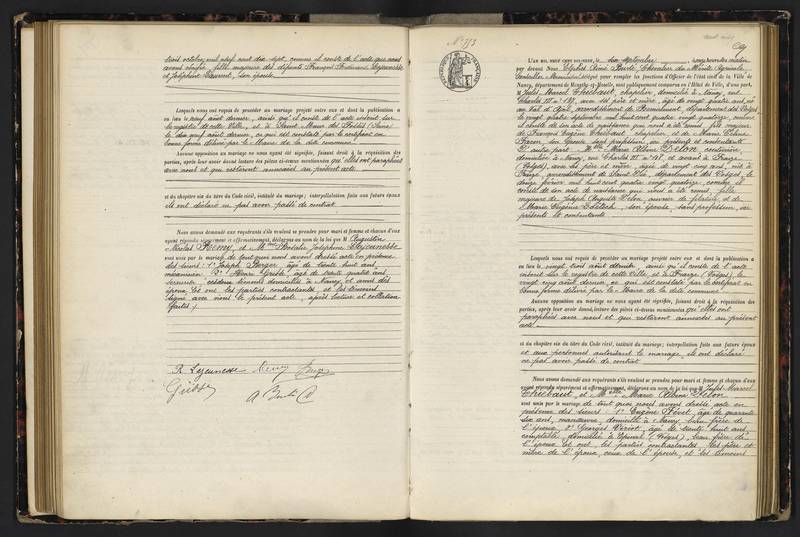 trois octobre, mil neuf cent dix sept, comme il conste de l'acte qui nous
fille majeure des défunts François Ferdinand Lejeunesse
et Joséphine Laurent, son épouse
Lesquels nous ont requis de procéder au mariage projeté entre eux et dont la publication a
eu lieu le neuf août dernier, ainsi qu'il conste de l'acte
le registre de cette Ville, et à Saint Maur des Fossés (Seine)
le dix neuf août dernier, ce qui est constaté par le certificat en
bonne forme délivré par le Maire de la dite commune
Aucune opposition au mariage ne nous ayant été signifiée, faisant droit à la réquisition des
parties, après leur avoir donné lecture des pièces ci-dessus mentionnées qu'elles ont paraphées
avec nous et qui resteront annexées au présent acte
et du chapitre six du titre du Code civil, intitulé du mariage; interpellation faite aux futurs époux
ils ont déclaré ne pas avoir passé de contrat
Nous avons demandé aux requérants s'ils veulent se prendre pour mari et femme et chacun d'eux
ayant répondu séparément et affirmativement, déclarons au nom de la loi que M. Augustin
Nicolas Remy, et Joséphine Lejeunesse
sont unis par le mariage de tout quoi nous avons dressé acte en présence
des sieurs: 1° Joseph Berger, âgé de trente huit ans,
mécanicien, 2° Henri Griette, âgé de trente quatre ans
domiciliés à Nancy, et amis des
époux, les uns les parties contractantes et les témoins
signé avec nous le présent acte, après lecture et collation
faites.
R Lejeunesse Remy Berger
N° 773
L'an mil neuf cent dix-neuf, le dix septembre, à onze heures du matin
par devant Nous Chevalier du Mérite Agricole
Conseiller Municipal délégué pour remplir les fonctions d'Officier de l'état civil de la Ville de
Nancy, département de Meurthe-et-Moselle, sont publiquement comparus en l'Hôtel de Ville, d'une part,
M. Jules Marcel Thiébaut, chapelier, domicilié à Nancy, rue
Charles III n° 133, avec ses père et mère, âgé de vingt quatre ans, né
au Val d'Ajol, arrondissement de Remiremont, département des Vosges
le vingt quatre septembre mil huit cent quatre vingt quatorze, comme
il conste de son acte de naissance qui nous a été remis, fils majeur
de François Eugène Thiébaut, chapelier et de Marie
son épouse sans profession, ici présents et consentants
D'autre part. Marie Albine Felon couturière
domiciliée à Nancy, rue Charles III n° 91 et avant à Fraize
(Vosges), avec ses père et mère, âgée de vingt cinq ans, née à
Fraize, arrondissement de Saint Dié, département des Vosges, le
douze février mil huit cent quatre vingt quatorze, comme il
conste de son acte de naissance qui nous a été remis, fille
majeure de Joseph Auguste Felon, ouvrier de filature, et de
Marie Eugénie son épouse, sans profession, ici
présents et consentants
Lesquels nous ont requis de procéder au mariage projeté entre eux et dont la publication a
eu lieu le vingt trois août dernier, ainsi qu'il conste de l'acte
inscrit sur le registre de cette Ville, et à Fraize (Vosges), le
vingt cinq août dernier, ce qui est constaté par le certificat en
bonne forme délivré par le Maire de la dite commune
Aucune opposition au mariage ne nous ayant été signifiée, faisant droit à la réquisition des
parties, après leur avoir donné lecture des pièces ci-dessus mentionnées qu'elles ont
paraphées avec nous et qui resteront annexées au présent
acte
et du chapitre six du titre du Code civil, intitulé du mariage; interpellation faite aux futurs époux
et aux personnes autorisant le mariage, ils ont déclaré
ne pas avoir passé de contrat
Nous avons demandé aux requérants s'ils veulent se prendre pour mari et femme et chacun d'eux
ayant répondu séparément et affirmativement, déclarons au nom de la loi que M. Jules Marcel
Thiébaut, et Marie Albine Felon
sont unis par le mariage de tout quoi nous avons dressé acte en
présence des sieurs: 1° Eugène âgé de quarante
six ans, manœuvre, domicilié à Nancy, beau frère de
l'épouse, 2° Georges âgé de trente huit ans,
comptable, domicilié à Epinal (Vosges), beau frère de
l'époux, et ont, les parties contractantes, les père et
mère de l'époux, ceux de l'épouse, et les témoins